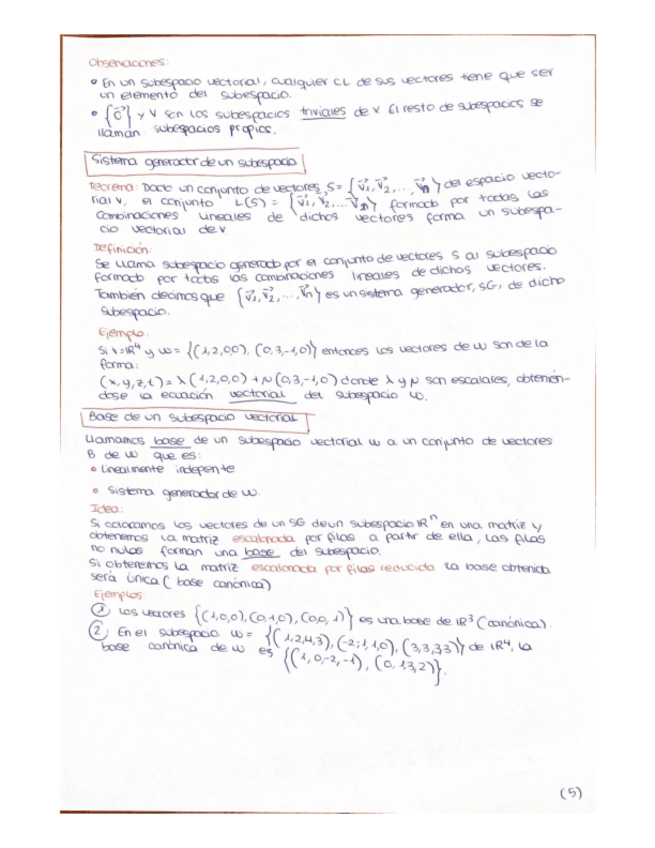 Observaciones:
• En un subespacio vectorial, cualquier CL de sus vectores tiene que ser
un elemento del subespacio.
• {0⃗} y V son los subespacios triviales de V. El resto de subespacios se
llaman subespacios propios.
Sistema generador de un subespacio
Teorema: Dado un conjunto de vectores, S = {v⃗1, v⃗2, ..., v⃗n} del espacio vecto-
rial V, el conjunto L(S) = {v⃗1, v⃗2, ... v⃗n} formado por todas las
combinaciones lineales de dichos vectores forma un subespa-
cio vectorial de V
Definición:
Se llama subespacio generado por el conjunto de vectores S al subespacio
formado por todas las combinaciones lineales de dichos vectores.
También decimos que {v⃗1, v⃗2, ..., v⃗n} es un sistema generador, SG, de dicho
subespacio.
Ejemplo:
Si V=IR⁴ y W = {(1,2,0,0), (0,3,-1,0)} entonces los vectores de W son de la
forma:
(x,y,z,t) = λ(1,2,0,0) + μ(0,3,-1,0) donde λ y μ son escalares, obtenién-
dose la ecuación vectorial del subespacio W.
Base de un subespacio vectorial
Llamamos base de un subespacio vectorial W a un conjunto de vectores
B de W que es:
• Linealmente indepente
• Sistema generador de W.
Idea:
Si colocamos los vectores de un SG de un subespacio IRⁿ en una matriz y
obtenemos la matriz escalonada por filas a partir de ella, las filas
no nulas forman una base del subespacio.
Si obtenemos la matriz escalonada por filas reducida la base obtenida
será única (base canónica)
Ejemplos
① Los vectores {(1,0,0), (0,1,0), (0,0,1)} es una base de IR³ (canónica).
② En el subespacio W = {(1,2,4,3), (-2,1,1,0), (3,3,3,3)} de IR⁴, la
base canónica de W es {(1,0,-2,-1), (0,1,3,2)}.
(5)